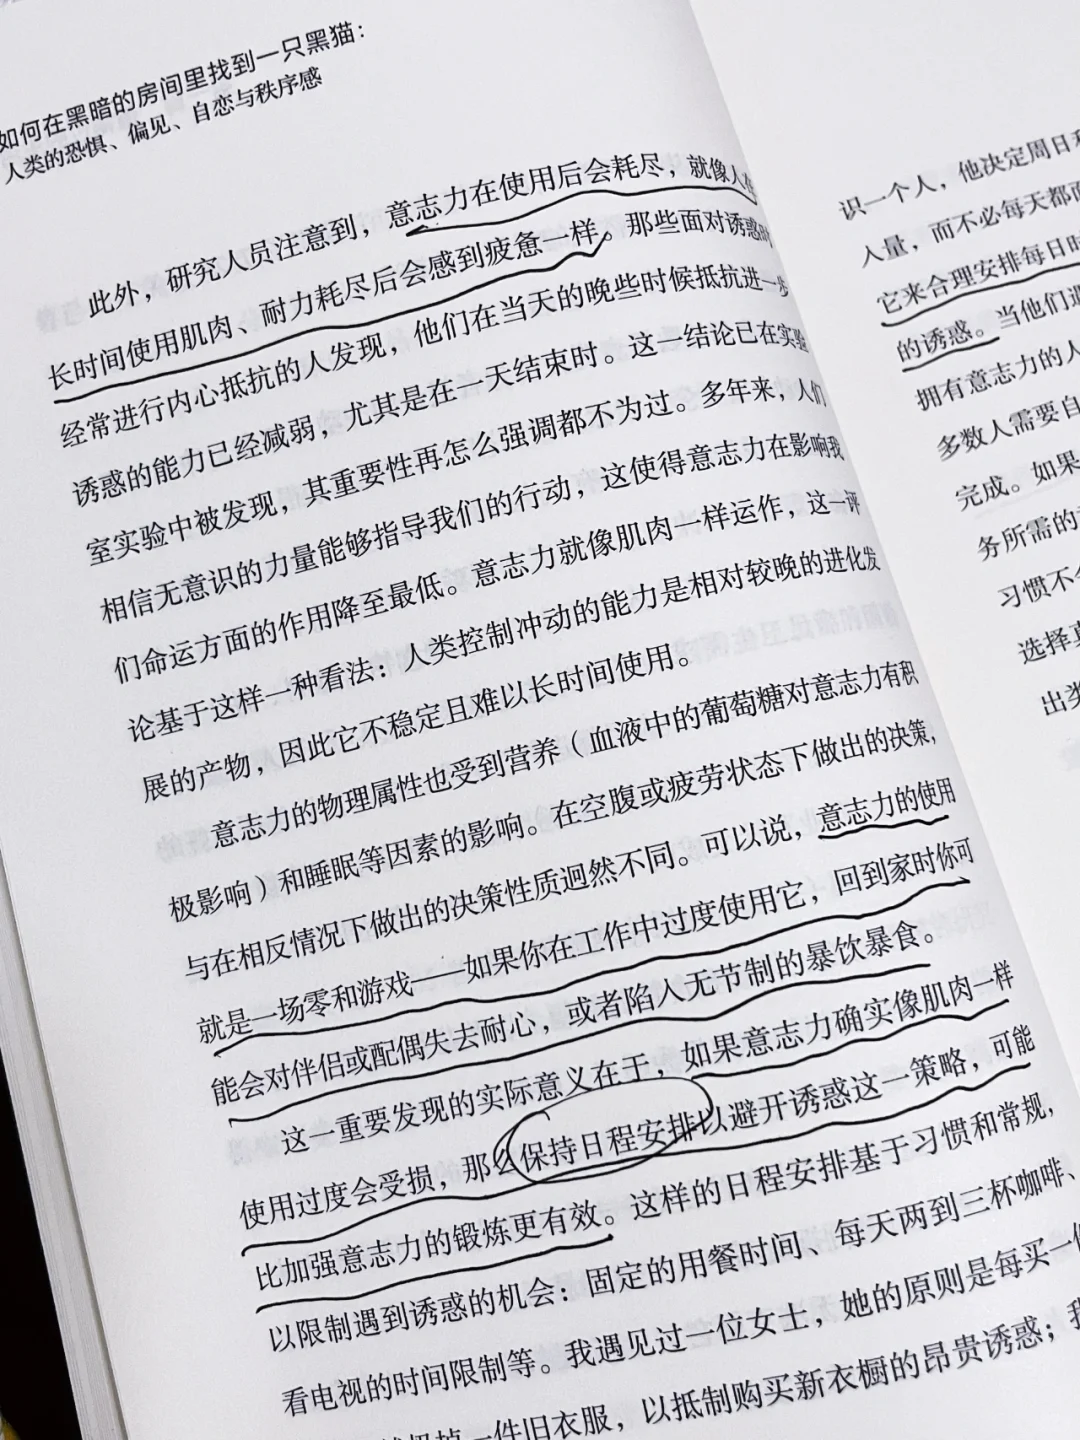 如何在黑暗的房间里找到一只黑猫：
人类的恐惧、偏见、自恋与秩序感
此外，研究人员注意到，意志力在使用后会耗尽，就像人在
长时间使用肌肉、耐力耗尽后会感到疲惫一样。那些面对诱惑时
经常进行内心抵抗的人发现，他们在当天的晚些时候抵抗进一步
诱惑的能力已经减弱，尤其是在一天结束时。这一结论已在实验
室实验中被发现，其重要性再怎么强调都不为过。多年来，人们
相信无意识的力量能够指导我们的行动，这使得意志力在影响我
们命运方面的作用降至最低。意志力就像肌肉一样运作，这一评
论基于这样一种看法：人类控制冲动的能力是相对较晚的进化发
展的产物，因此它不稳定且难以长时间使用。
意志力的物理属性也受到营养（血液中的葡萄糖对意志力有积
极影响）和睡眠等因素的影响。在空腹或疲劳状态下做出的决策，
与在相反情况下做出的决策性质迥然不同。可以说，意志力的使用
就是一场零和游戏——如果你在工作中过度使用它，回到家时你可
能会对伴侣或配偶失去耐心，或者陷入无节制的暴饮暴食。
这一重要发现的实际意义在于，如果意志力确实像肌肉一样
使用过度会受损，那么保持日程安排以避开诱惑这一策略，可能
比加强意志力的锻炼更有效。这样的日程安排基于习惯和常规，
以限制遇到诱惑的机会：固定的用餐时间、每天两到三杯咖啡、
看电视的时间限制等。我遇见过一位女士，她的原则是每买一件
一件旧衣服，以抵制购买新衣橱的昂贵诱惑；我
识一个人，他决定周日和
人量，而不必每天都面
它来合理安排每日时
的诱惑。当他们避
拥有意志力的人
多数人需要自
完成。如果
务所需的
习惯不
选择真
出类